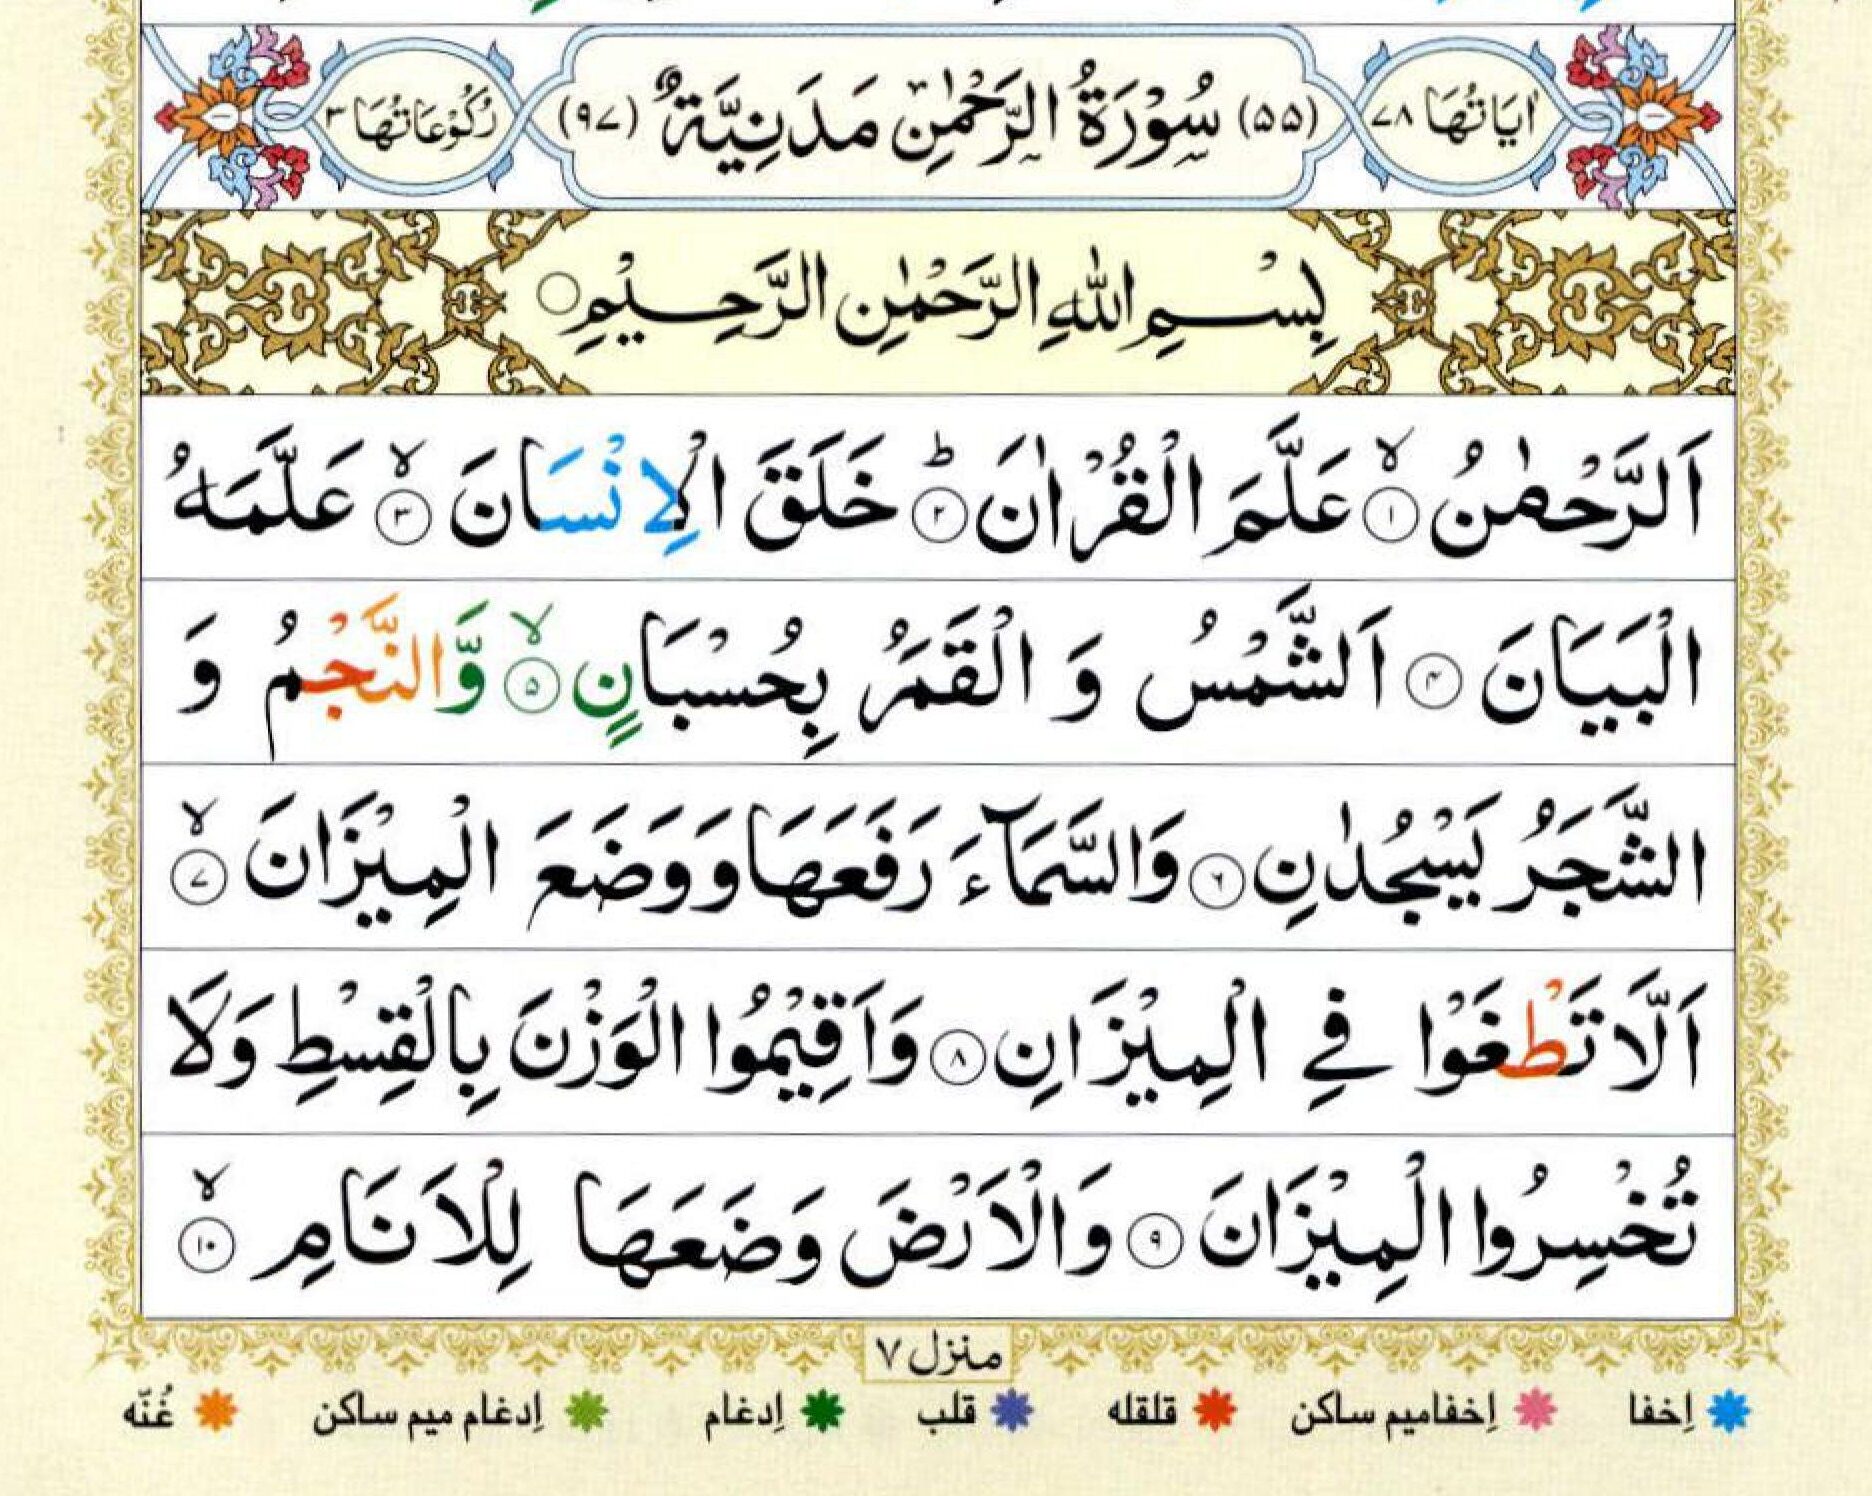 اٰيَاتُهَا ٧٨ (٥٥) سُوْرَةُ الرَّحْمٰنِ مَدَنِيَّةٌ (٩٧) رُكُوْعَاتُهَا ٣
بِسْمِ اللّٰهِ الرَّحْمٰنِ الرَّحِيْمِ ○
اَلرَّحْمٰنُ ۙ﴿۱﴾ عَلَّمَ الْقُرْاٰنَ ؕ﴿۲﴾ خَلَقَ الْاِنْسَانَ ۙ﴿۳﴾ عَلَّمَهُ
الْبَيَانَ ﴿۴﴾ اَلشَّمْسُ وَ الْقَمَرُ بِحُسْبَانٍ ۙ﴿۵﴾ وَّالنَّجْمُ وَ
الشَّجَرُ يَسْجُدٰنِ ﴿۶﴾ وَالسَّمَآءَ رَفَعَهَا وَوَضَعَ الْمِيْزَانَ ۙ﴿۷﴾
اَلَّا تَطْغَوْا فِي الْمِيْزَانِ ﴿۸﴾ وَاَقِيْمُوا الْوَزْنَ بِالْقِسْطِ وَلَا
تُخْسِرُوا الْمِيْزَانَ ﴿۹﴾ وَالْاَرْضَ وَضَعَهَا لِلْاَنَامِ ۙ﴿۱۰﴾
منزل ۷
اِخفا اِخفامیم ساکن قلقله قلب اِدغام اِدغام میم ساکن غُنّه